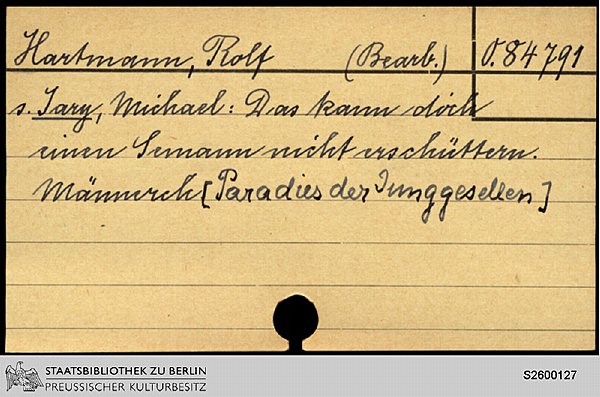 Hartmann, Rolf (Bearb.) O. 84791
s. Jary, Michael: Das kann doch
einen Semann nicht erschüttern.
Männerch [Paradies der Junggesellen]
STAATSBIBLIOTHEK ZU BERLIN
PREUSSISCHER KULTURBESITZ
S2600127